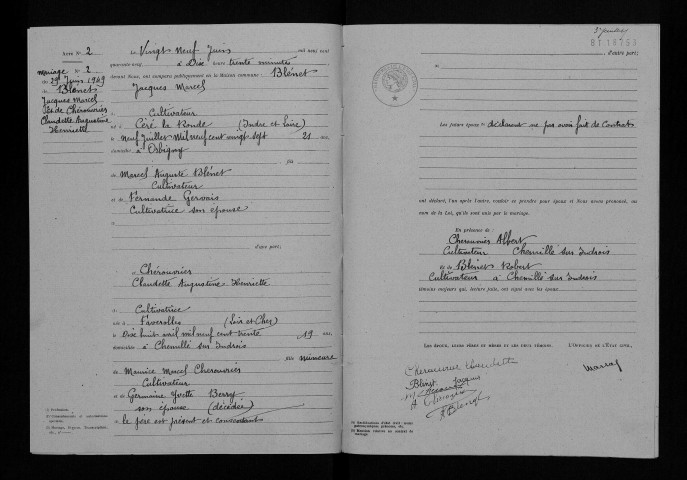 Acte N° 2
mariage N° 2
du 29 Juin 1949
Blénet
Jacques Marcel
et de Chérouvrier
Claudette Augustine
Henriette
Le Vingt Neuf Juin mil neuf cent
quarante-neuf à Dix heures trente minutes
devant Nous, ont comparu publiquement en la Maison commune : Blénet
Jacques Marcel
Cultivateur
né à Céré la Ronde (Indre et Loire)
le Neuf Juillet Mil neuf cent vingt sept 21 ans,
domicilié à Orbigny
fils
de Marcel Auguste Blénet
Cultivateur
et de Fernande Gervais
Cultivatrice son épouse
d'une part;
et Chérouvrier
Claudette Augustine Henriette
Cultivatrice
née à Faverolles (Loir et Cher)
le Dix huit avril mil neuf cent trente 19 ans,
domiciliée à Chemillé sur Indrois
mineure
de Maurice Marcel Cherouvrier
Cultivateur
et de Germaine Yvette Berry
son épouse (décédée)
le père est présent et consentant
d'autre part;
Les futurs époux déclarent ne pas avoir fait de Contrat
ont déclaré, l'un après l'autre, vouloir se prendre pour époux et Nous avons prononcé, au
nom de la Loi, qu'ils sont unis par le mariage.
En présence de :
Cherouvrier Albert
Cultivateur Chemillé sur Indrois
et de Blénet Robert
Cultivateur à Chemillé sur Indrois
témoins majeurs qui, lecture faite, ont signé avec les époux
L'Officier de l'État civil,
Blénet Jacques